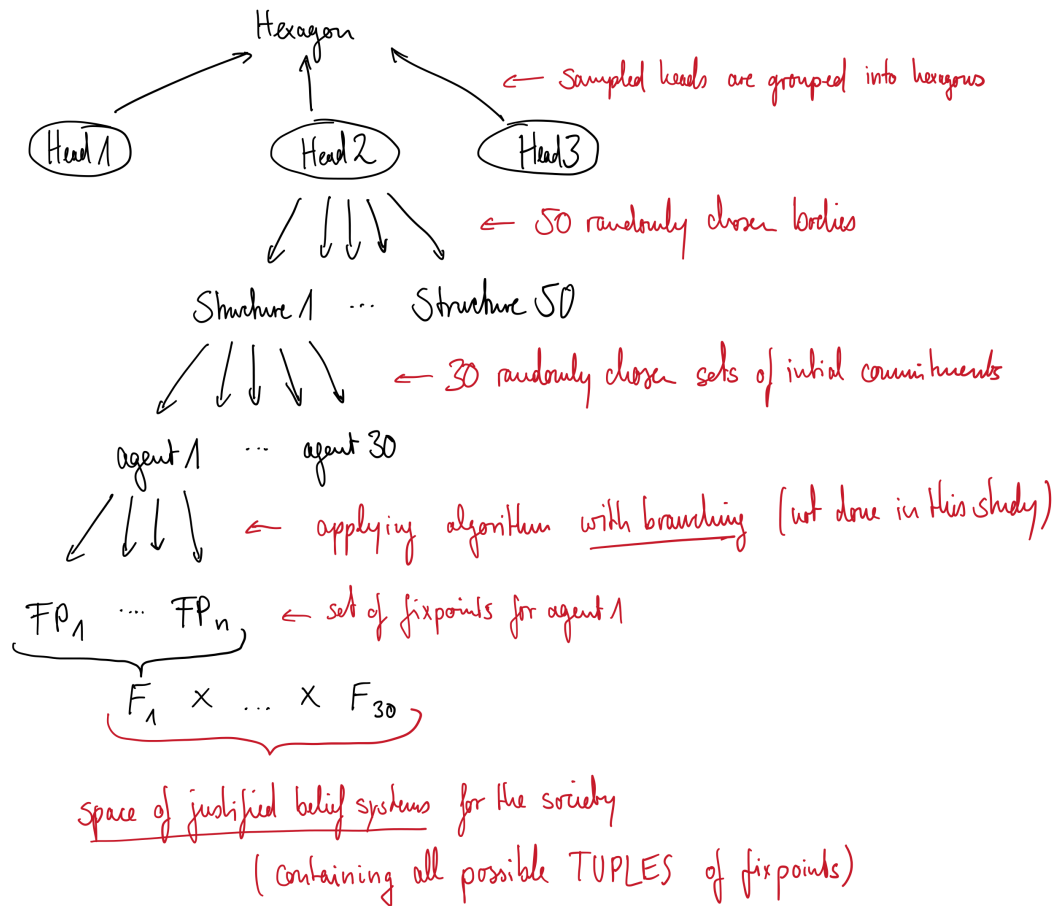 Hexagon
← Sampled heads are grouped into hexagons
Head 1 Head 2 Head 3
← 50 randomly chosen bodies
Structure 1 ... Structure 50
← 30 randomly chosen sets of initial commitments
agent 1 ... agent 30
← applying algorithm with branching (not done in this study)
FP₁ ... FPₙ ← set of fixpoints for agent 1
F₁ × ... × F₃₀
space of justified belief systems for the society
(containing all possible TUPLES of fixpoints)